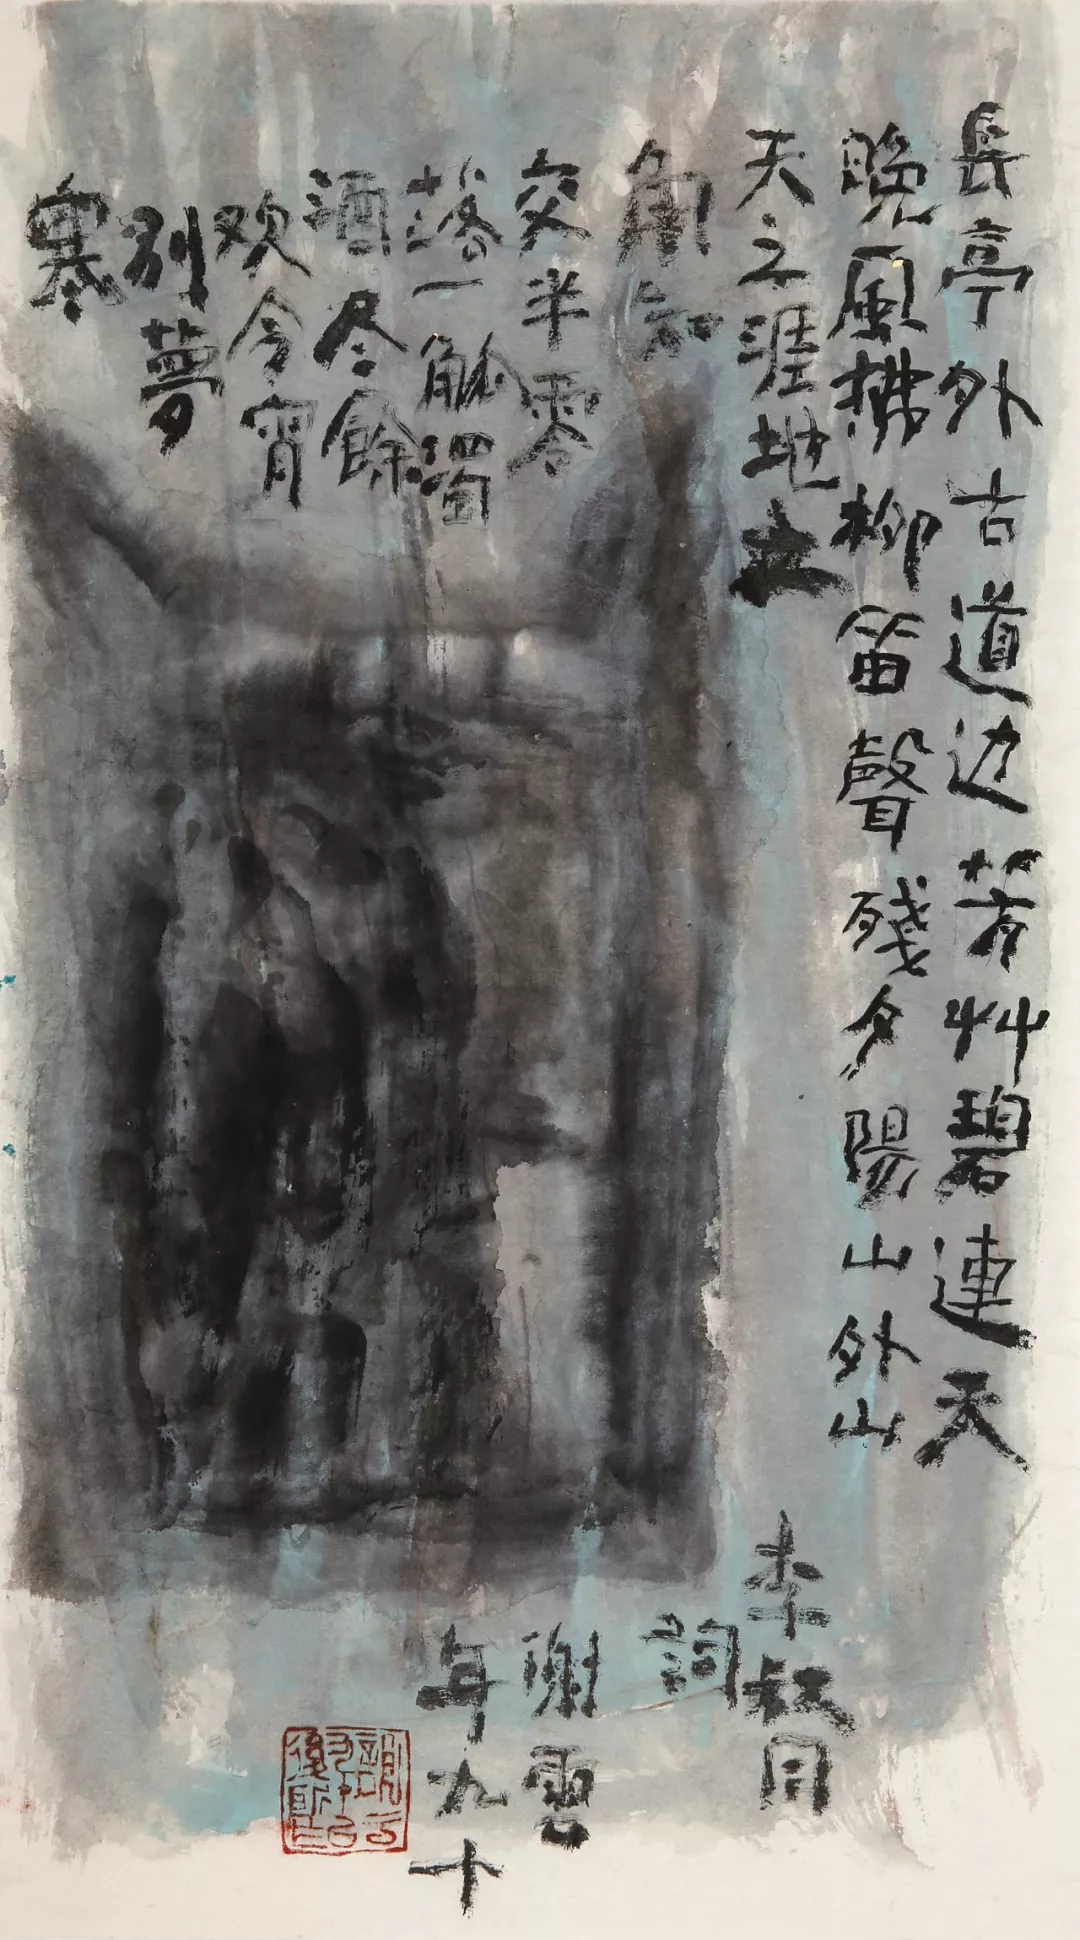 長亭外古道边芳艸碧連天
晚風拂柳笛聲殘夕陽山外山
天之涯地之
角知
交半零
落一觚濁
酒尽餘
欢今宵
别夢
寒
李叔同
詞
謝雲
年九十